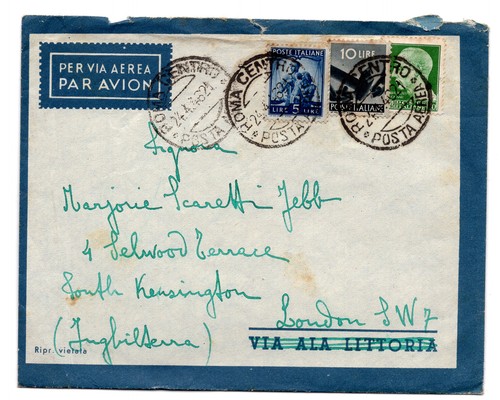 PER VIA AEREA
PAR AVION
ROMA CENTRO
POSTA AEREA
POSTE ITALIANE
LIRE 5 LIRE
10 LIRE
POSTE ITALIANE
Signora
Marjorie Scaretti Jebb
4 Selwood Terrace
South Kensington
London SW7
(Inghilterra)
VIA ALA LITTORIA
Ripr. vietata